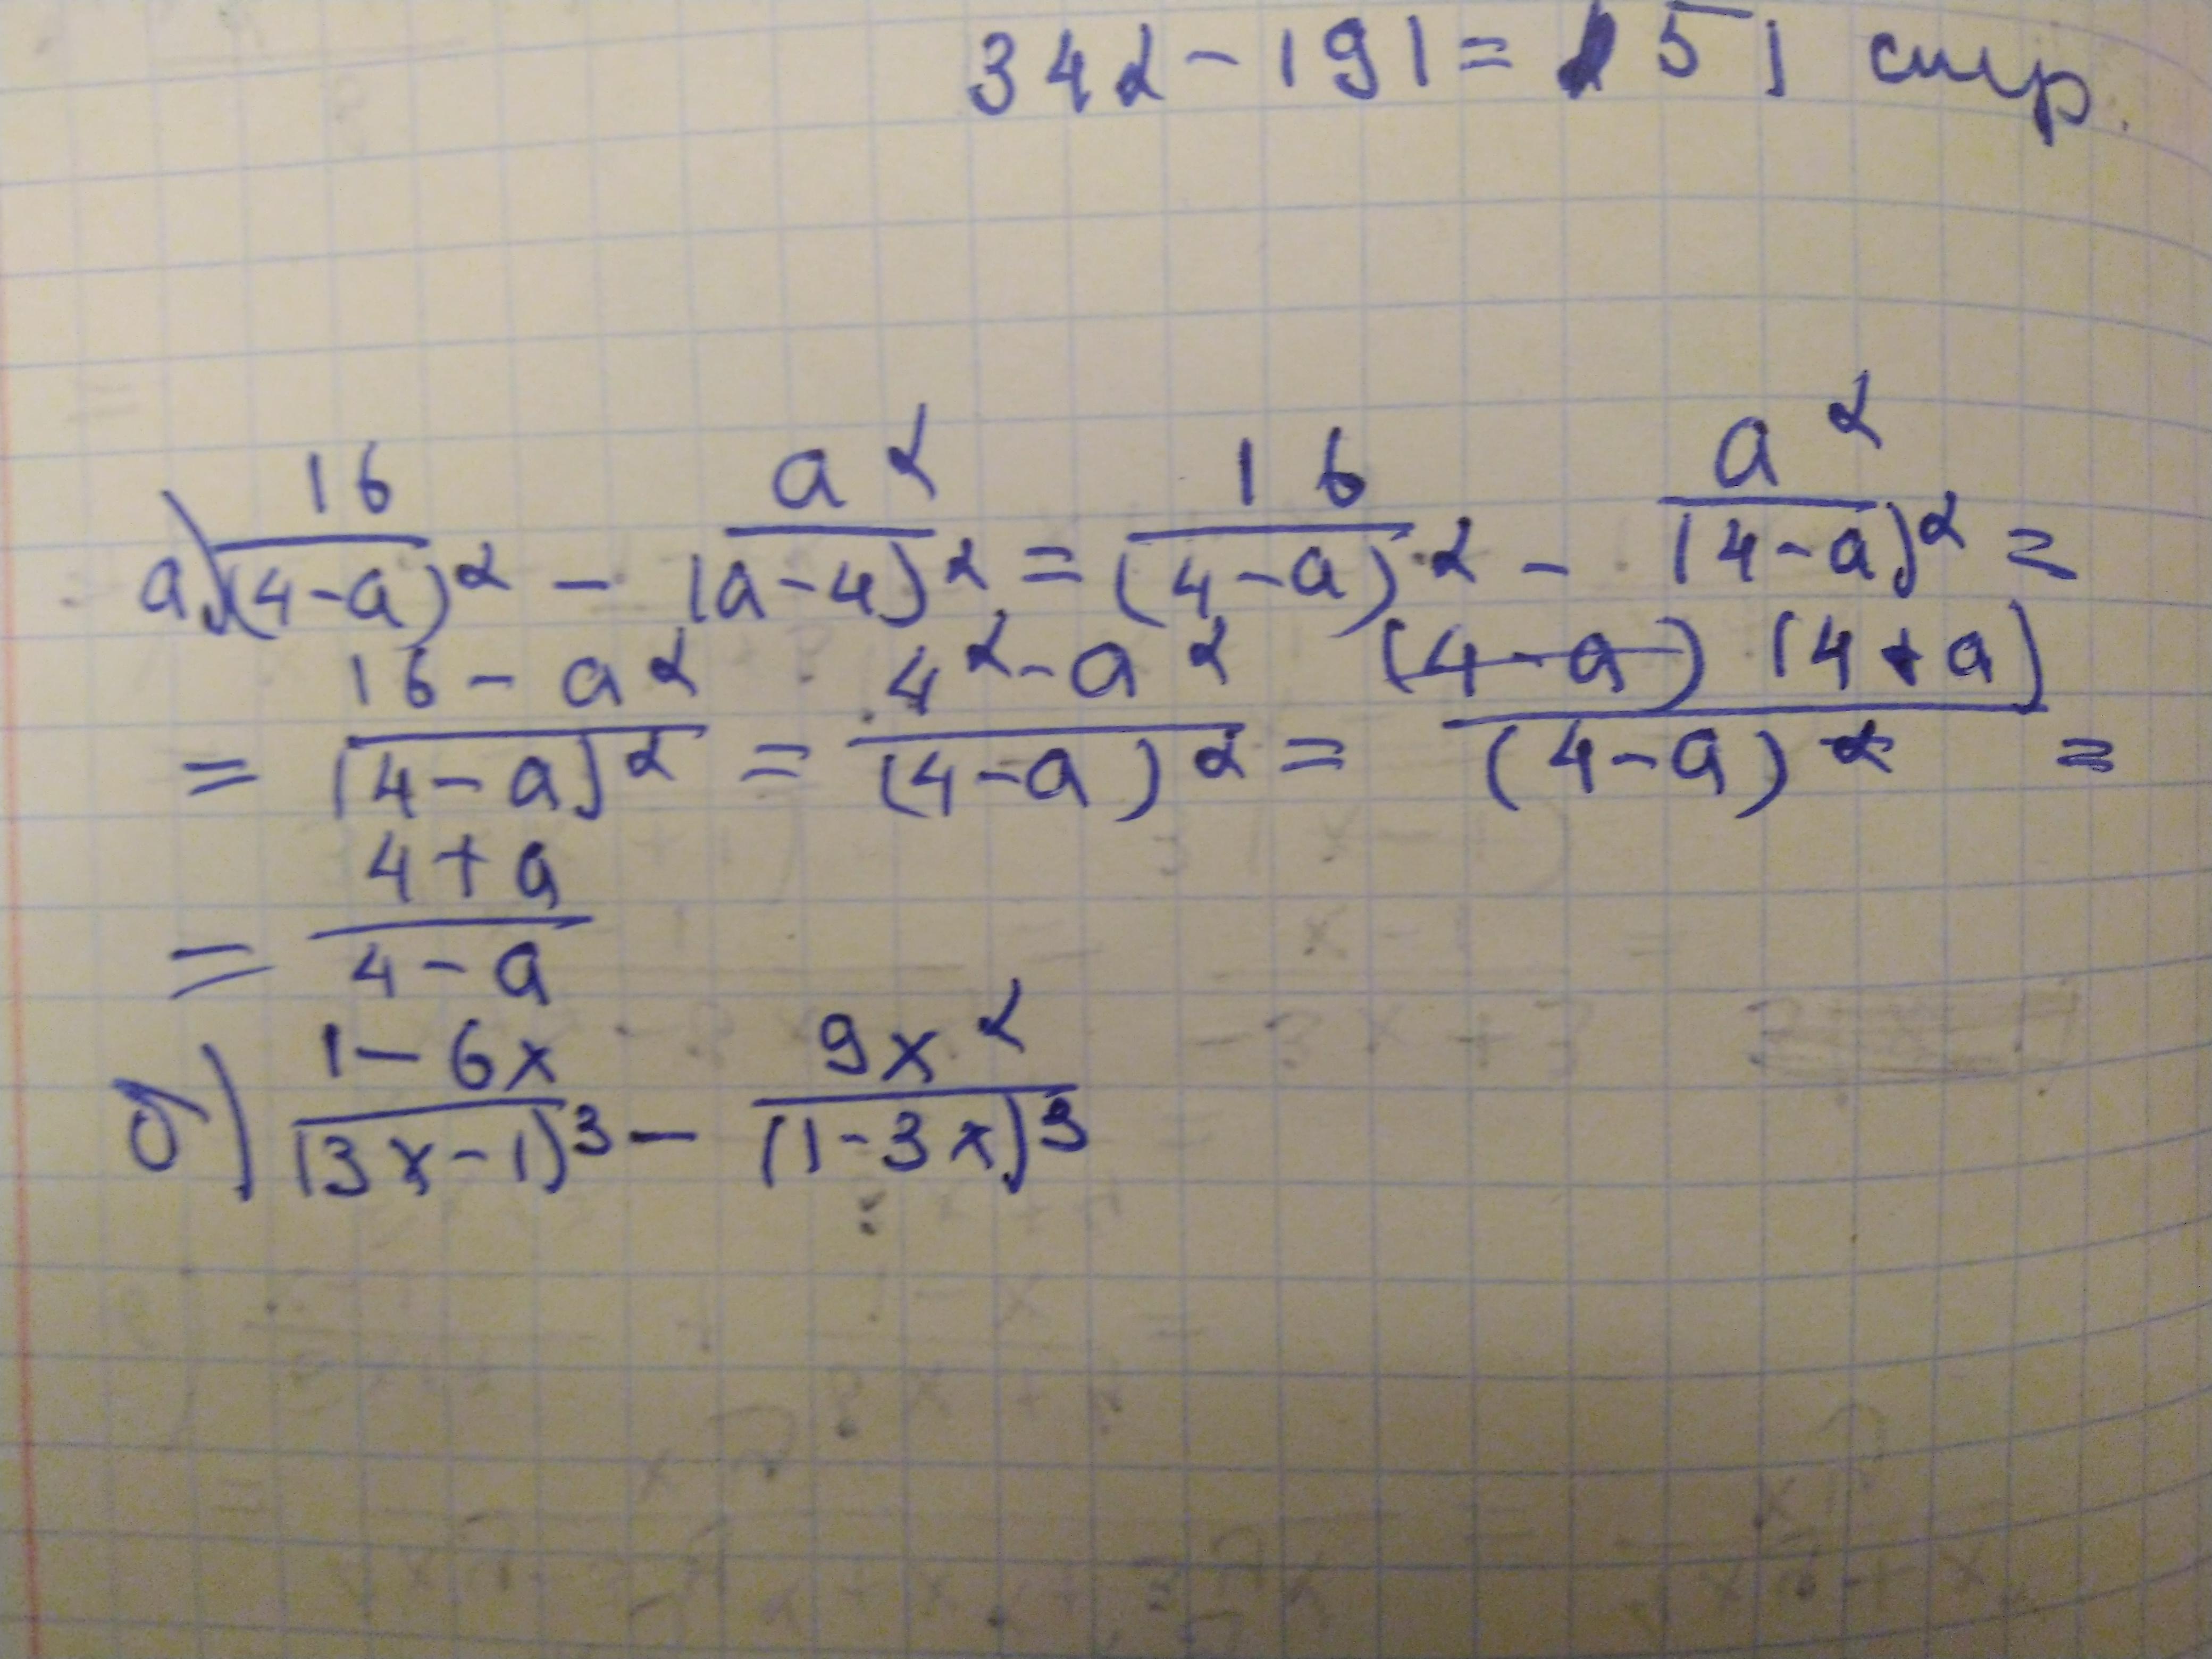 342 - 191 = 151 стр.
а) 16/(4-a)² - a²/(a-4)² = 16/(4-a)² - a²/(4-a)² =
= 16-a²/(4-a)² = 4²-a²/(4-a)² = (4-a)(4+a)/(4-a)² =
= 4+a/4-a
б) 1-6x/(3x-1)³ - 9x²/(1-3x)³